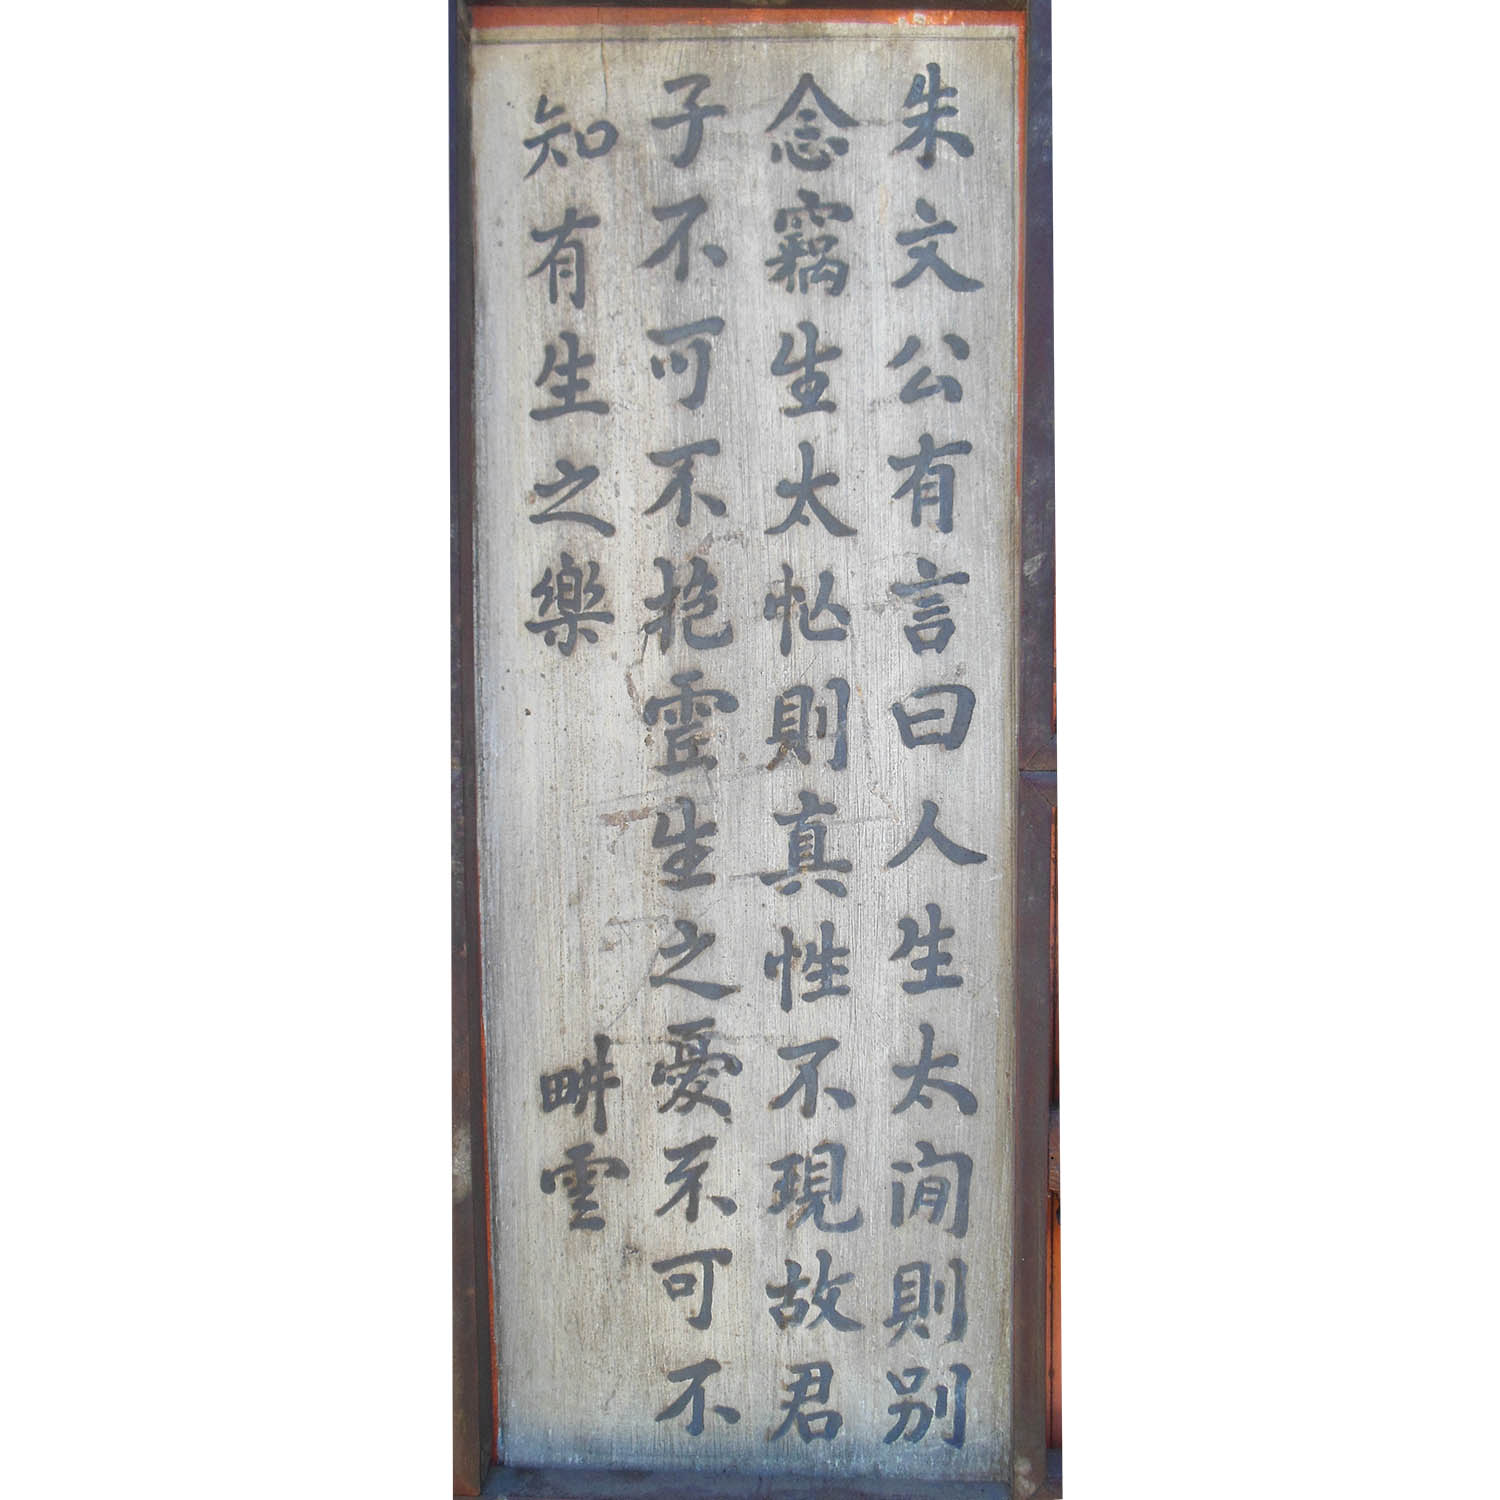 朱文公有言曰人生太閒則別
念竊生太忙則真性不現故君
子不可不抱虛生之憂不可不
知有生之樂
畊雲